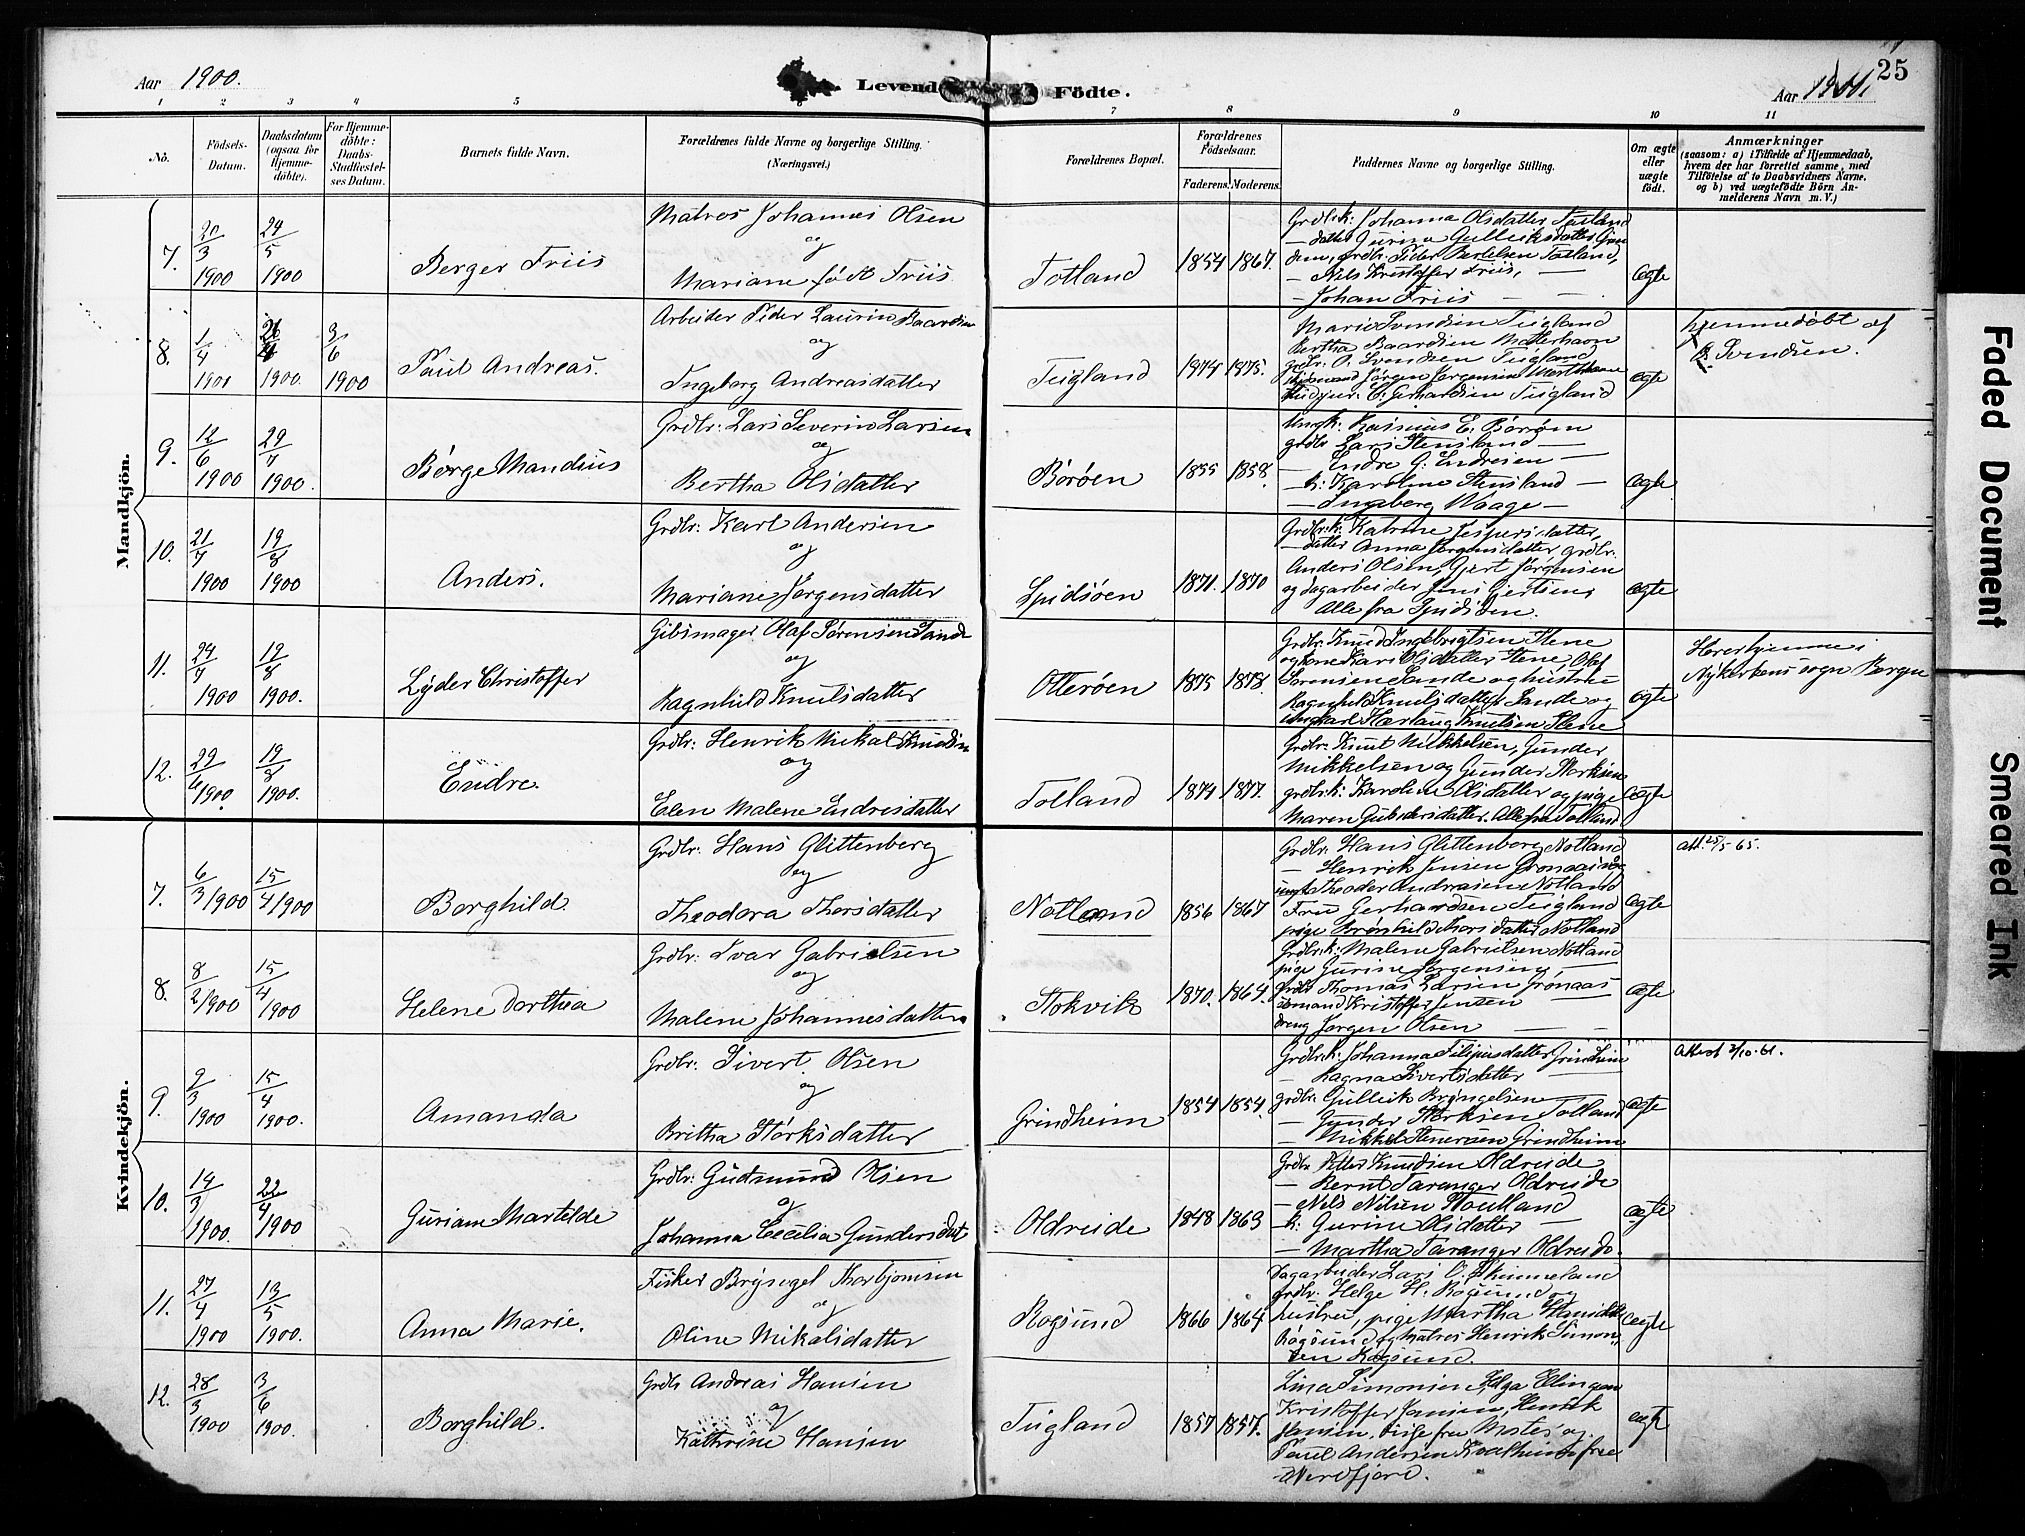 Aar 1900.
Levende Födte.
Aar 1900.
25
1 2 3 4 5 6 7 8 9 10 11
No.
Födsels-Datum.
Daabsdatum (ogsaa for Hjemme-döbte).
For Hjemme-döbte: Daabs-Stadfæstel-ses Datum.
Barnets fulde Navn.
Forældrenes fulde Navne og borgerlige Stilling.
(Næringsvei.)
Forældrenes Bopæl.
Forældrenes Födselsaar.
Faderens. Moderens.
Faddernes Navne og borgerlige Stilling.
Om ægte eller uægte födt.
Anmærkninger
(saasom: a) i Tilfælde af Hjemmedaab,
hvem der har forrettet samme, med
Tilföielse af to Daabsvidners Navne,
og b) ved uægtefödte Börn An-
melderens Navn m. V.)
Mandkjön.
7. 20/3 1900 24/5 1900
Berger Friis
Matros Johannes Olsen
og
Mariane født Friis
Totland 1854 1867.
Grdlr.k: Johanna Olsdatter Totland
— datter Gurina Gulleiksdatter
grdlr. Peder Totland,
— Nils Kristoffer Friis, —
— Johan Friis — —
ægte
8. 1/4 1900 1900. 3/6 1900
Paul Andreas.
Arbeider Peder Laurin Baardsen
og
Ingeborg Andreasdatter
Tugland 1874 1875.
Marie Svendsen Tugland
Bertha Baardsen
grdlr. O. Svendsen Tugland
Jørgen Jørgensen
C. Gerhardsen Tugland
ægte
hjemmedøbt af
O. Svendsen.
9. 12/6 1900 29/7 1900.
Børge Mandius
Grdlr: Lars Severin Larsen
og
Bertha Olsdatter
Børøen 1855 1858.
Ungk: Rasmus E. Børøen
grdlr Lars Stensland —
— Endre G. Endresen —
— k: Karoline Stensland —
— Ingeborg Waage —
ægte
10. 21/7 1900 19/8 1900
Anders.
Grdlr: Karl Andersen
og
Mariane Jørgensdatter
Spidsøen 1871. 1870
Grdlr.k: Katrine Jespersdatter,
— datter Anna Jørgensdatter grdlr.
Anders Olsen, Gjert Jørgensen
og dagarbeider Jens Gjertsen,
Alle fra Spidsøen.
ægte
11. 24/7 1900 19/8 1900.
Lyder Christoffer
Gibsmager Olaf Sørensen Sande
og
Ragnhild Knutsdatter
Otterøen 1875 1878.
Grdlr: Knud Ingebrigtsen Stene
og kone Kari Olsdatter Stene, Olaf
Sørensen Sande og hustru
Ragnhild Knutsdatter Sande og
ungkarl Knutsen Stene
ægte
Hører hjemme i
Nykerkens sogn Bergen
12. 29/6 1900 19/8 1900.
Endre.
Grdlr: Henrik Mikal Knudsen
og
Elen Malene Endresdatter
Totland 1874 1877.
Grdlr: Knut Mikkelsen, Gunder
Mikkelsen og Gunder Størksen
grdlr.k: Karoline Olsdatter og pige
Maren Alle fra Totland
ægte
Kvindekjön.
7. 6/3 1900 15/4 1900
Borghild.
Grdlr: Hans Glittenberg
og
Theodora Thorsdatter
Notland 1856 1867
Grdlr: Hans Glittenberg Notland
— Henrik Jensen Grønaas
ungk Theodor Andreasen Notland
Fru Gerhardsen Tugland
pige Thorsdatter Notland
ægte
att. 25/5 65.
8. 8/2 1900 15/4 1900
Helene Dorthea
Grdlr: Ivar Gabrielsen
og
Malene Johannesdatter
Stokvik 1870. 1864.
Grdlr.k: Malene Gabrielsen Notland
pige Gurine Jørgensen, —
grdlr Thomas Larsen Grønaas
sømand Kristoffer Jensen —
dreng Jørgen Olsen — —
ægte
9. 2/3 1900 15/4 1900.
Amanda
Grdlr: Sivert Olsen
og
Britha Størksdatter
Grindheim 1854 1854.
Grdlr.k: Johanna Filipusdatter Grindheim
— Ragna Sivertsdatter —
grdlr: Gulleik Brøngelsen
— Gunder Størksen Totland
— Mikkel Stenersen Grindheim
ægte
Attest 2/10-61.
10. 14/3 1900. 22/4 1900
Guriane Martilde
Grdlr: Gudmund Olsen
og
Johanna Cecilia Gundersdat
Oldreide 1848 1863
Grdlr. Peter Knudsen Oldreide
— Bernt Taranger Oldreide
— Nils Nilsen
— k: Gurine Olsdatter —
— Martha Taranger Oldreide.
ægte
11. 27/4 1900 13/5 1900.
Anna Marie.
Fisker Brynegel Thorbjørnsen
og
Oline Mikalsdatter
Rogsund 1866 1864
Dagarbeider Lars O. Skimmeland
grdlr. Helge H. Rogsund og
hustru, pige Martha
Rogsund, og matros Henrik Simon-
sen Rogsund.
ægte
12. 28/3 1900 3/6 1900.
Borghild.
Grdlr Andreas Hansen
og
Kathrine Hansen
Tugland 1857 1857.
Lina Simonsen, Helga Ellingsen
Kristoffer Jansen, Henrik
Hansen, fra Moster og
Paul Andersen Kvalheim fra
Nordfjord.
ægte
Faded Document
Smeared Ink